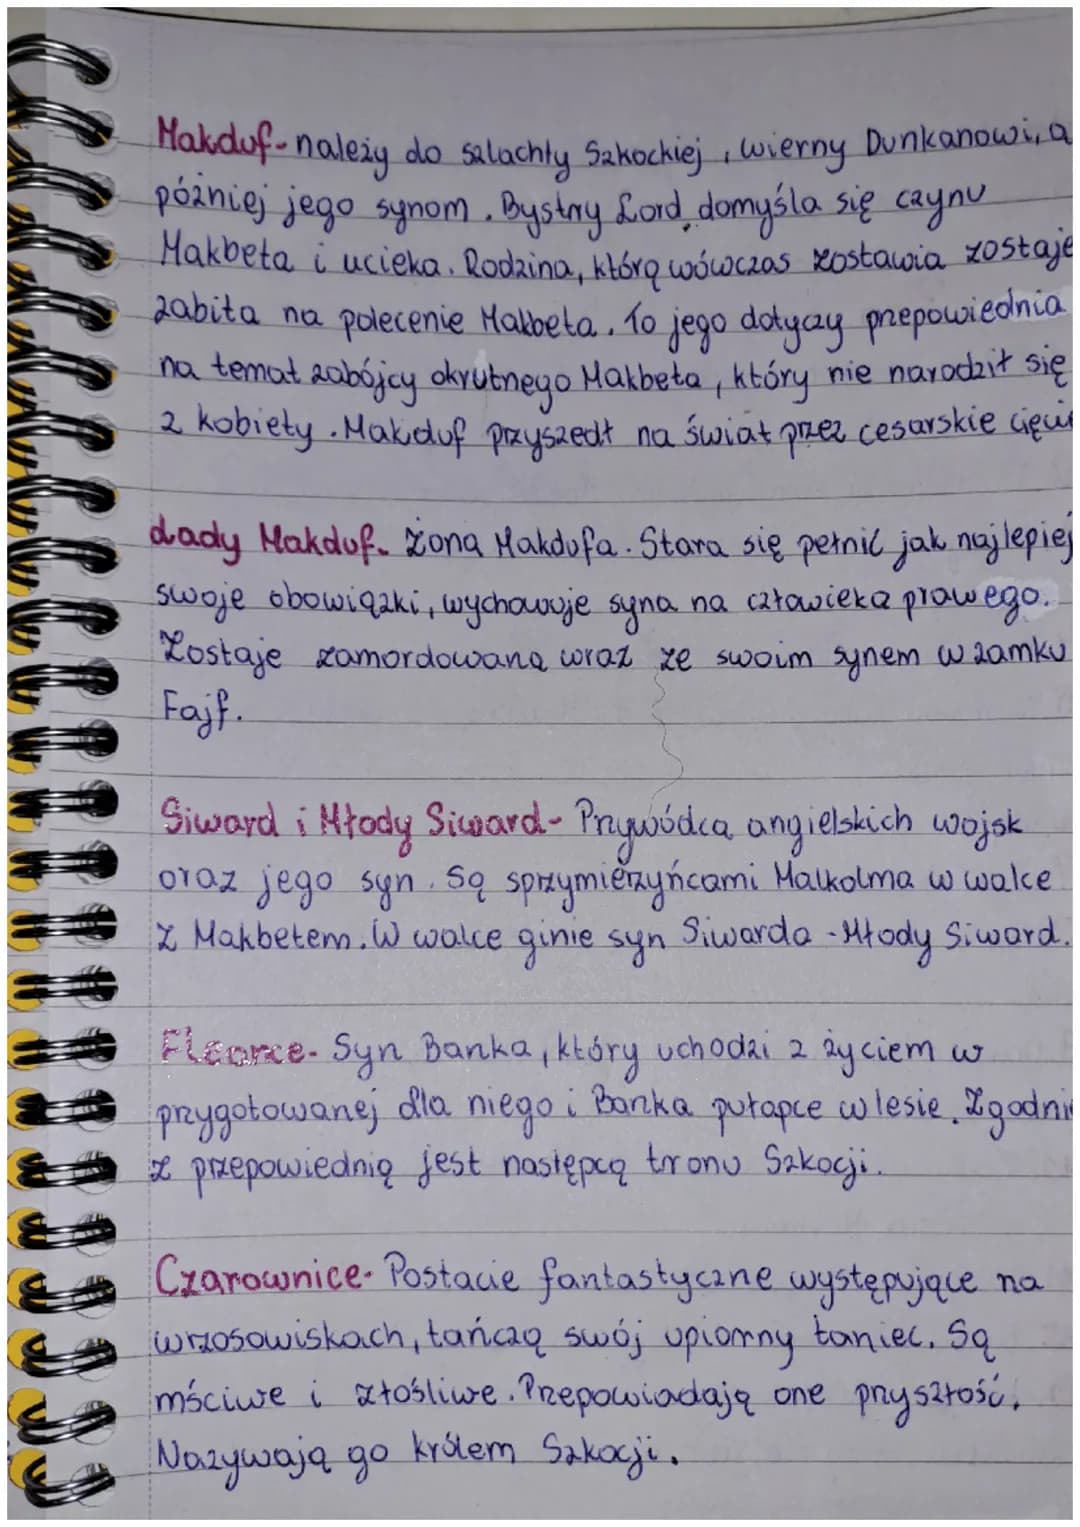 Makduf- należy do szlachty Szkockiej, wierny Dunkanowi, a
później jego synom. Bystry Lord domyśla się czynu
Makbeta i ucieka. Rodzina, którą wówczas zostawia zostaje
zabita na polecenie Makbeta. To jego dotyczy przepowiednia
na temat zabójcy okrutnego Makbeta, który nie narodził się
z kobiety. Makduf przyszedł na świat przez cesarskie
Lady Makduf- Żona Makdufa. Stara się pełnić jak najlepiej
swoje obowiązki, wychowuje syna na człowieka prawego.
Zostaje zamordowana wraz ze swoim synem w zamku
Fajf.
Siward i Młody Siward- Przywódca angielskich wojsk
oraz jego syn. Są sprzymierzyńcami Malkolma w walce
z Makbetem. W walce ginie syn Siwarda - Młody Siward.
Fleance- Syn Banka, który uchodzi z życiem w
przygotowanej dla niego i Banka pułapce w lesie. Zgodni
z przepowiednią jest następcą tronu Szkocji.
Czarownice- Postacie fantastyczne występujące na
wrzosowiskach, tańczą swój upiorny taniec. Są
mściwe i złośliwe. Przepowiadają one przyszłość.
Nazywają go królem Szkocji.